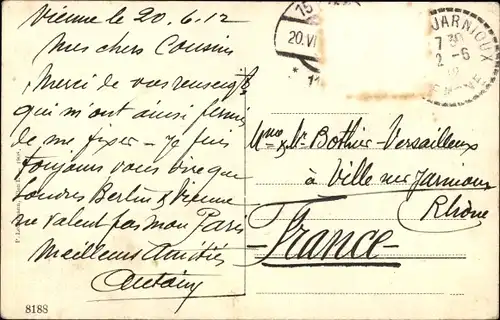 Vienne le 20.6.12
Mes chers Cousins
Merci de vos renseigts
qui m'ont ainsi permis
de me fixer – Je puis
toujours vous dire que
Londres Berlin & Vienne
ne valent pas mon Paris
Meilleures Amitiés
Antoiny
8188
20.VI
JARNIOUX
7 30
2 - 6
12
Mme & Mr Bothier-Versailleux
à Ville sur Jarnioux
Rhône
France